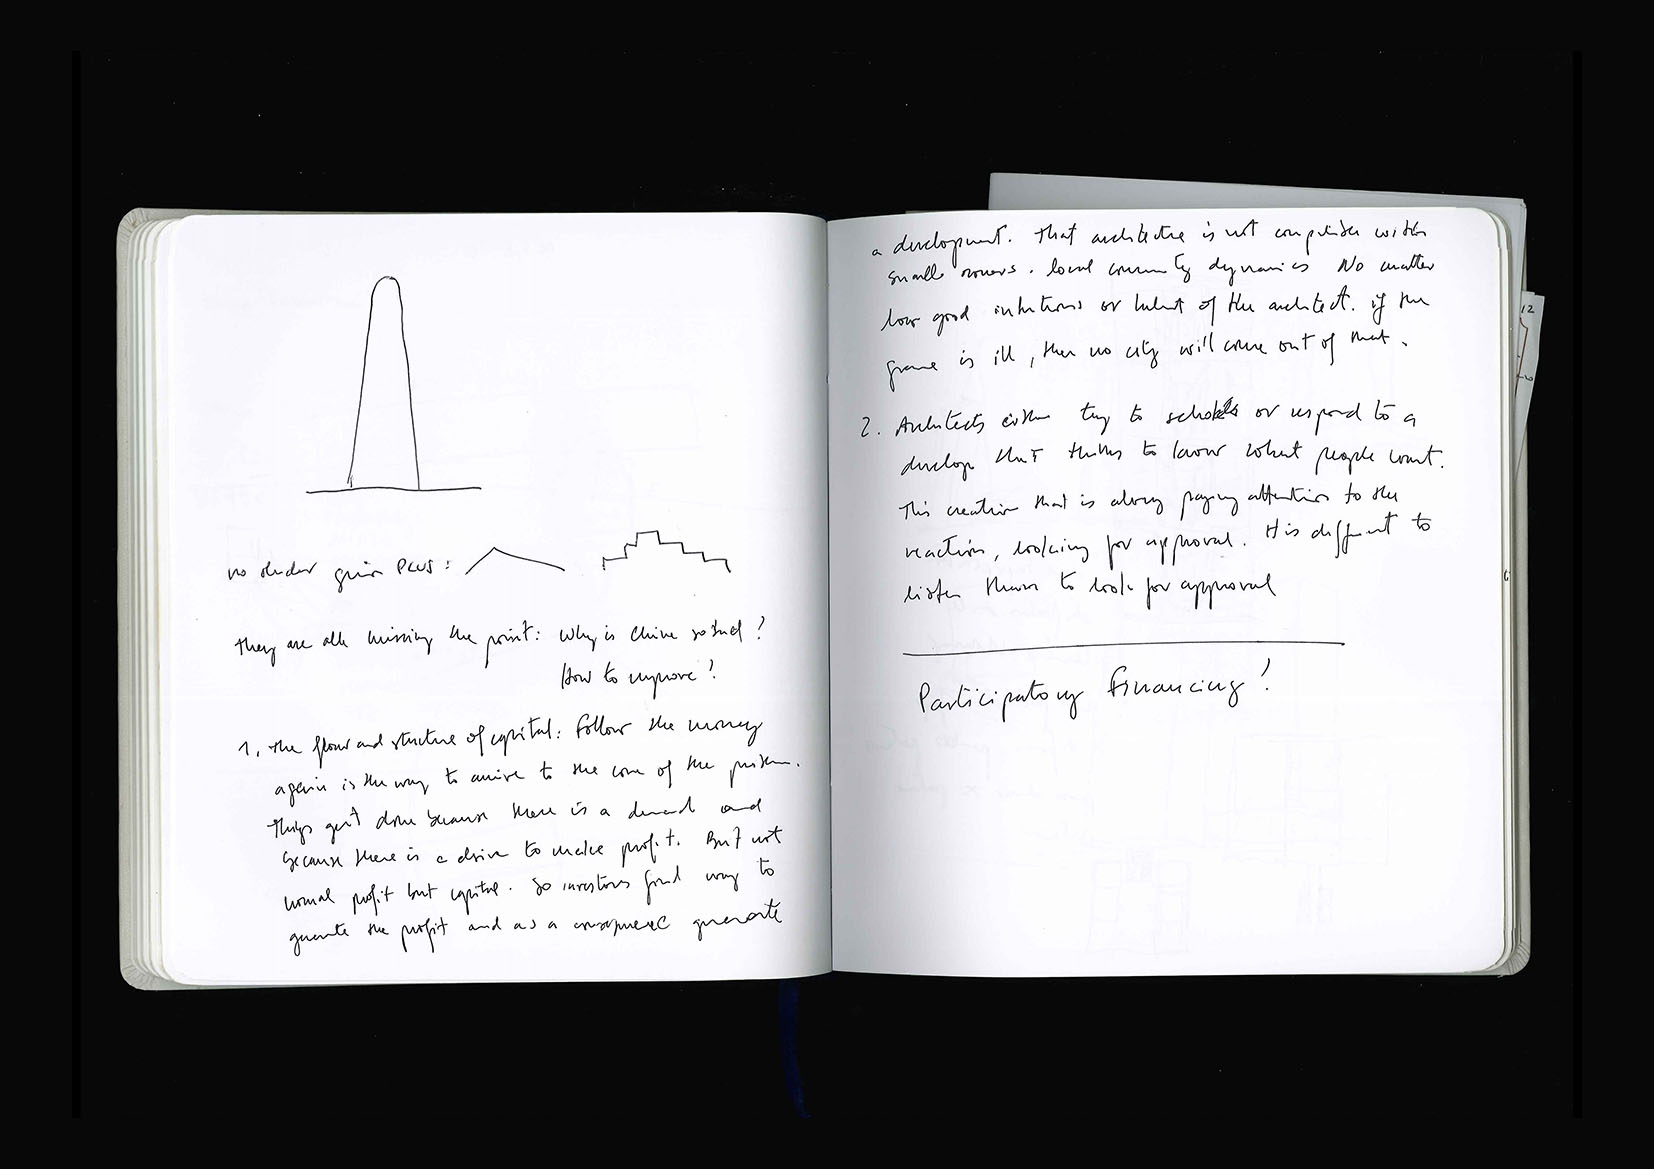 no
they are all missing the point: Why is China so sad?
How to improve?
1. the flow and structure of capital: Follow the money
again is the way to arrive to the core of the problem.
things get done because there is a demand and
because there is a drive to make profit. But not
normal profit but capital. So investors find way to
the profit and as a consequence generate
a development. that architecture is not with
small owners. local community dynamics No matter
how good intentions or talent of the architect. if the
game is ill, then no city will come out of that.
2. Architects either try to or respond to a
develop that thinks to know what people want.
This creation that is always paying attention to the
reaction, looking for approval. It is different to
listen than to look for approval
Participatory Financing!
12
20